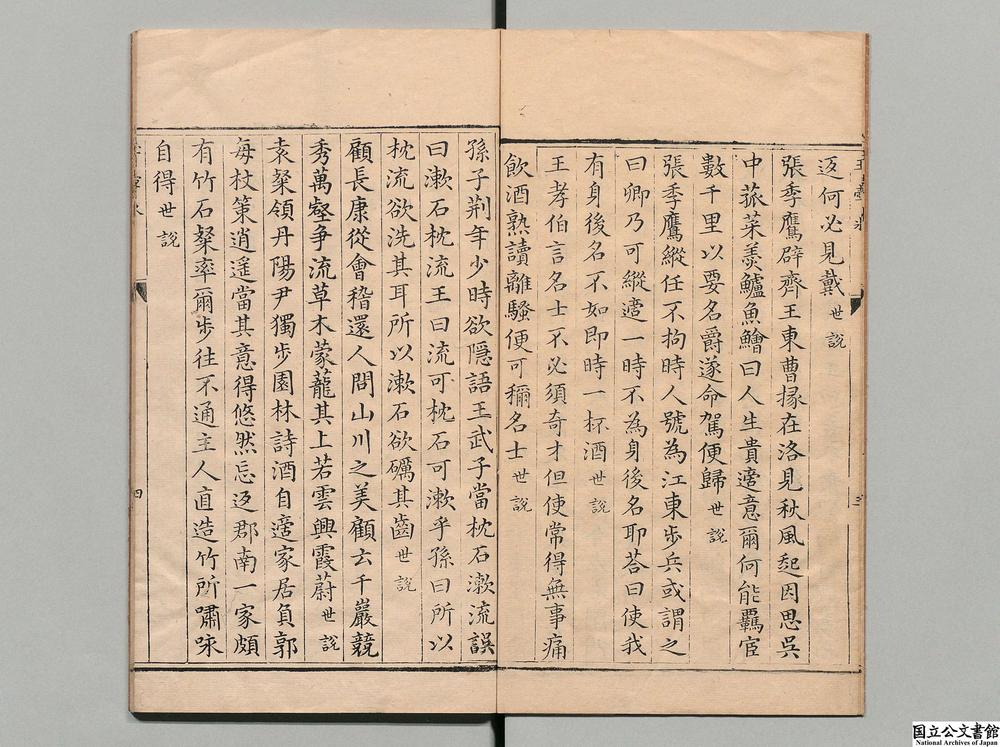 返何必見戴世説
張季鷹辟齊王東曹掾在洛見秋風起因思吳
中菰菜羹鱸魚鱠曰人生貴適意爾何能羈宦
數千里以要名爵遂命駕便歸世説
張季鷹縱任不拘時人號為江東步兵或謂之
曰卿乃可縱適一時不為身後名耶荅曰使我
有身後名不如即時一杯酒世説
王孝伯言名士不必須奇才但使常得無事痛
飲酒熟讀離騷便可稱名士世説
三
孫子荆年少時欲隱語王武子當枕石漱流誤
曰漱石枕流王曰流可枕石可漱乎孫曰所以
枕流欲洗其耳所以漱石欲礪其齒世説
顧長康從會稽還人問山川之美顧云千巖競
秀萬壑爭流草木蒙蘢其上若雲興霞蔚世説
袁粲領丹陽尹獨步園林詩酒自適家居負郭
每杖策逍遥當其意得悠然忘返郡南一家頗
有竹石粲率爾步往不通主人直造竹所嘯咏
自得世説
四
国立公文書館
National Archives of Japan